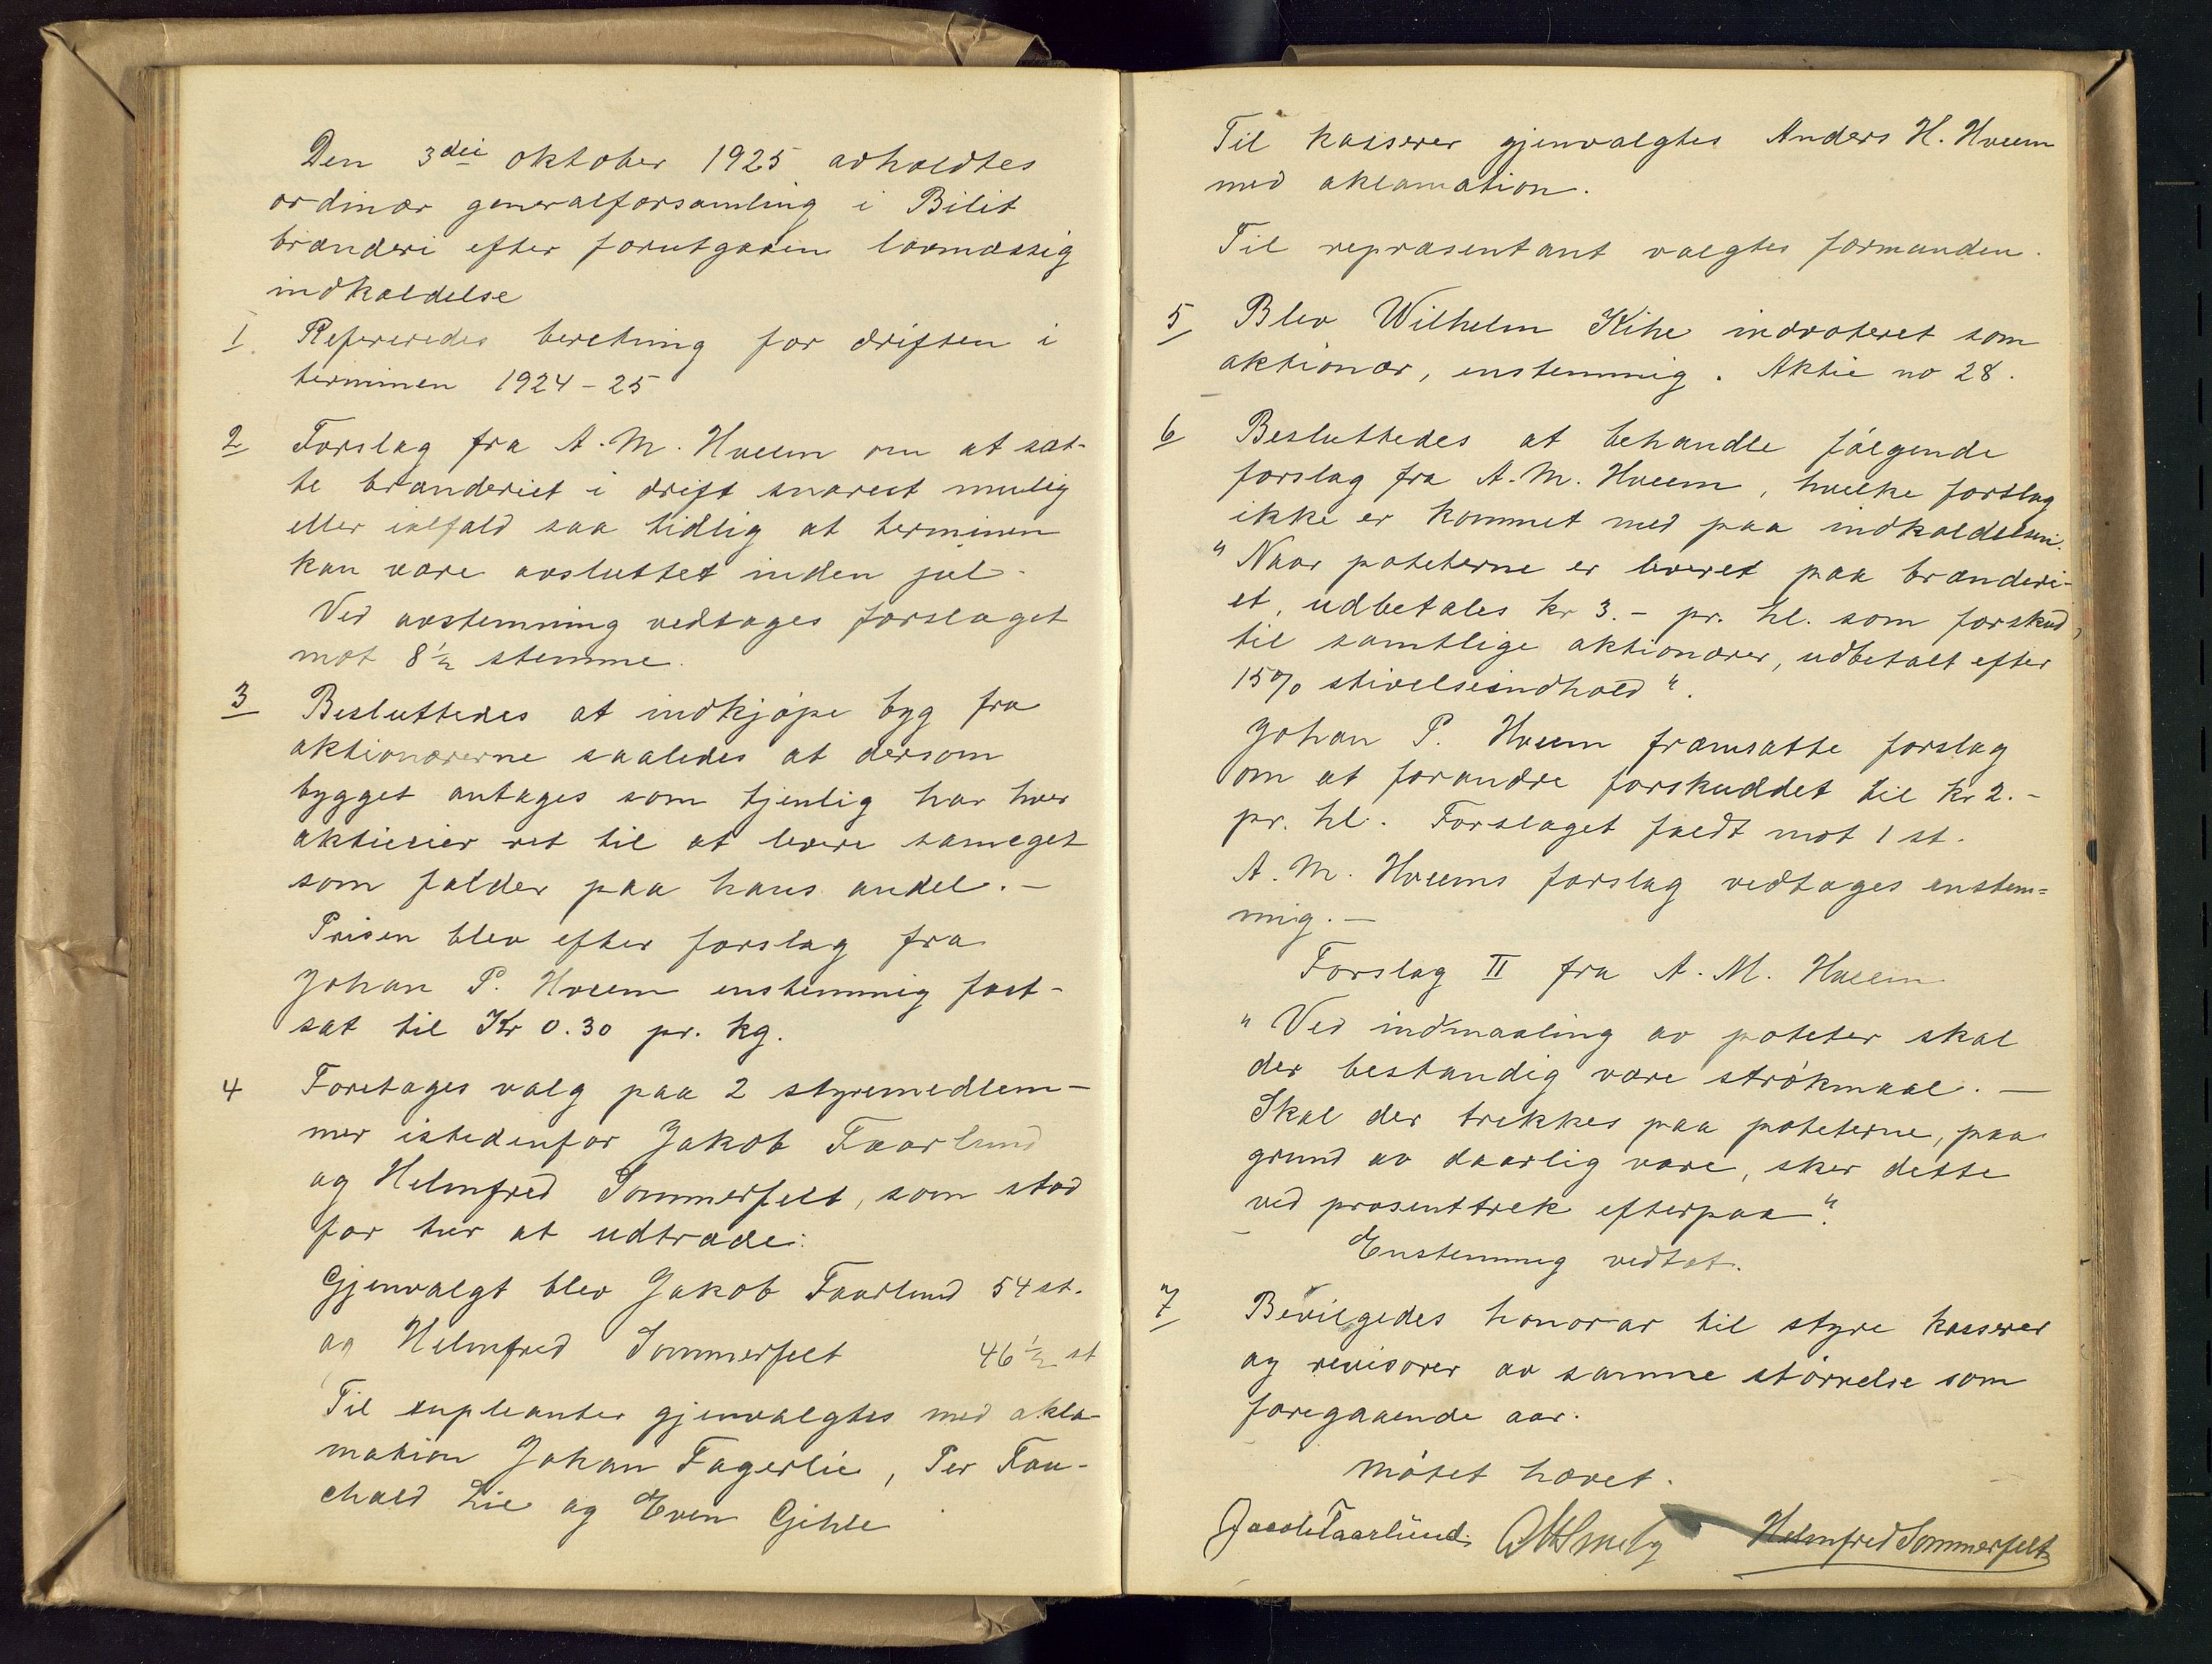 Den 3die oktober 1925 avholdtes
ordinær generalforsamling i Bilit
brænderi efter forutgaaen lovmæssig
indkaldelse
1. Refereredes beretning for driften i
terminen 1924-25
2 Forslag fra A. M. Hveem om at sæt-
te brænderiet i drift snarest mulig
eller ialfald saa tidlig at terminen
kan være avsluttet inden jul.
Ved avstemning vedtages forslaget
mot 8 1/2 stemme.
3 Besluttedes at indkjøpe byg fra
aktionærerne saaledes at dersom
bygget antages som tjenlig har hver
aktieeier ret til at levere sameget
som falder paa hans andel. —
Prisen blev efter forslag fra
Johan P. Hveem enstemmig fast-
sat til Kr 0.30 pr. kg.
4 Foretages valg paa 2 styremedlem-
mer istedenfor Jakob Faarlund
og Helmfred Sommerfelt, som stod
for tur at udtræde:
Gjenvalgt blev Jakob Faarlund 54 st.
og Helmfred Sommerfelt 46 1/2 st
Til supleanter gjenvalgtes med akla-
mation Johan Fagerlie, Per Fau-
chald Lie og Even Gihle
Til kasserer gjenvalgtes Anders H. Hveem
med aklamation.
Til repræsentant valgtes formanden.
5 Blev Wilhelm Kihe indvoteret som
aktionær, enstemmig. Aktie no 28.
6 Besluttedes at behandle følgende
forslag fra A. M. Hveem, hvilke forslag
ikke er kommet med paa indkaldelsen.
"Naar poteterne er leveret paa brænderi-
et, udbetales kr 3.- pr. hl. som forskud,
til samtlige aktionærer, udbetalt efter
15% stivelseindhold".
Johan P. Hveem framsatte forslag
om at forandre forskuddet til kr 2.-
pr. hl. Forslaget faldt mot 1 st.
A. M. Hveems forslag vedtages enstem=
mig. —
Forslag II fra A. M. Hveem
"Ved indmaaling av poteter skal
der bestandig være strøkmaal. —
Skal der trekkes paa poteterne, paa
grund av daarlig vare, sker dette
ved prosenttrek efterpaa".
Enstemmig vedtat.
7 Bevilgedes honorar til styre kasserer
og revisorer av samme størrelse som
foregaaende aar.
Møtet hævet.
Jacob Faarlund. Helmfred Sommerfelt